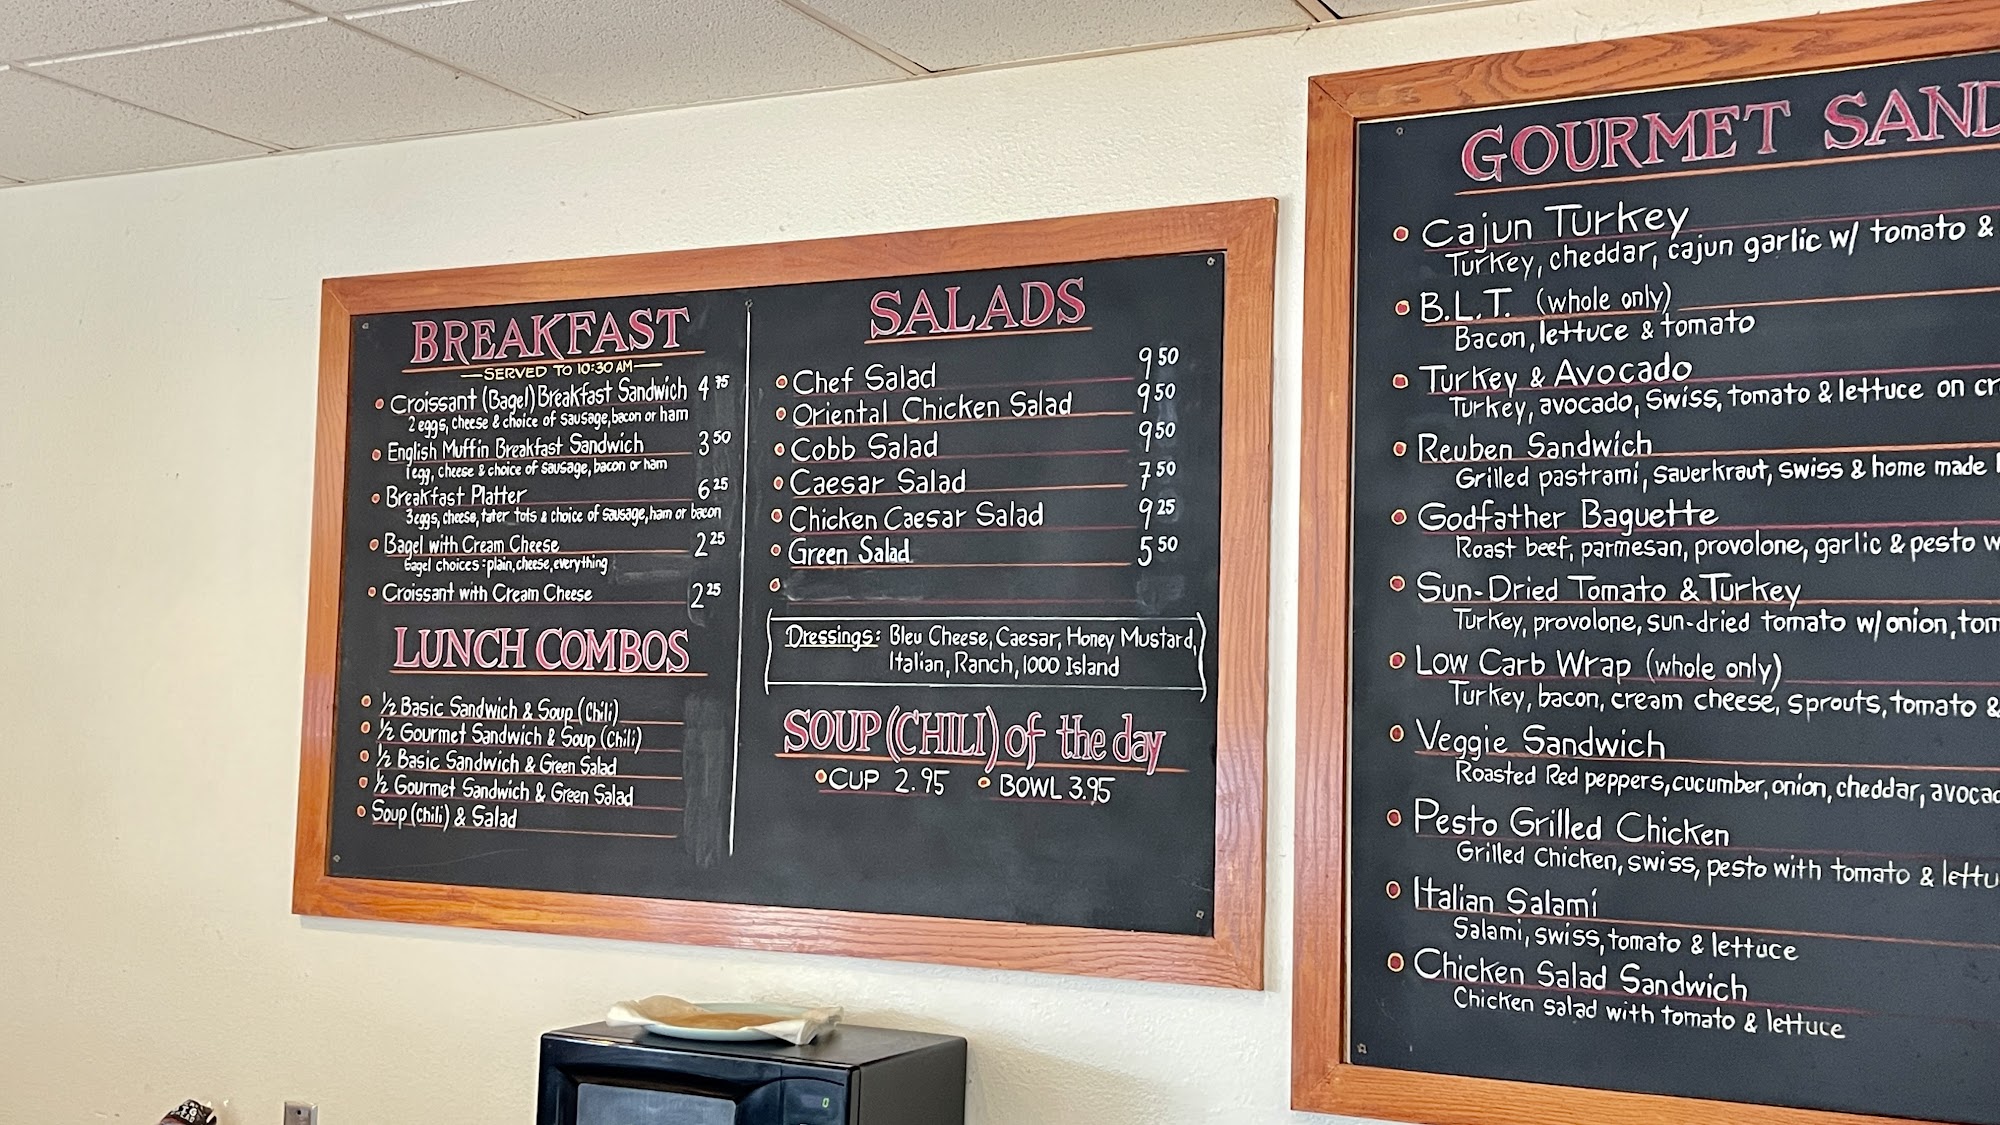 BREAKFAST
SERVED TO 10:30 AM
Croissant (Bagel) Breakfast Sandwich 4 75
2 eggs, cheese & choice of sausage, bacon or ham
English Muffin Breakfast Sandwich 3 50
1 egg, cheese & choice of sausage, bacon or ham
Breakfast Platter 6 25
3 eggs, cheese, tater tots & choice of sausage, ham or bacon
Bagel with Cream Cheese 2 25
Bagel choices: plain, cheese, everything
Croissant with Cream Cheese 2 25
LUNCH COMBOS
½ Basic Sandwich & Soup (Chili)
½ Gourmet Sandwich & Soup (Chili)
½ Basic Sandwich & Green Salad
½ Gourmet Sandwich & Green Salad
Soup (chili) & Salad
SALADS
Chef Salad 9 50
Oriental Chicken Salad 9 50
Cobb Salad 9 50
Caesar Salad 7 50
Chicken Caesar Salad 9 25
Green Salad 5 50
Dressings: Bleu Cheese, Caesar, Honey Mustard,
Italian, Ranch, 1000 Island
SOUP (CHILI) of the day
CUP 2.95 BOWL 3.95
GOURMET SAND
Cajun Turkey
Turkey, cheddar, cajun garlic w/ tomato &
B.L.T. (whole only)
Bacon, lettuce & tomato
Turkey & Avocado
Turkey, avocado, swiss, tomato & lettuce on cr
Reuben Sandwich
Grilled pastrami, sauerkraut, swiss & home made
Godfather Baguette
Roast beef, parmesan, provolone, garlic & pesto w
Sun-Dried Tomato & Turkey
Turkey, provolone, sun-dried tomato w/ onion, tom
Low Carb Wrap (whole only)
Turkey, bacon, cream cheese, sprouts, tomato &
Veggie Sandwich
Roasted Red peppers, cucumber, onion, cheddar, avocad
Pesto Grilled Chicken
Grilled Chicken, swiss, pesto with tomato & lettu
Italian Salami
Salami, swiss, tomato & lettuce
Chicken Salad Sandwich
Chicken salad with tomato & lettuce